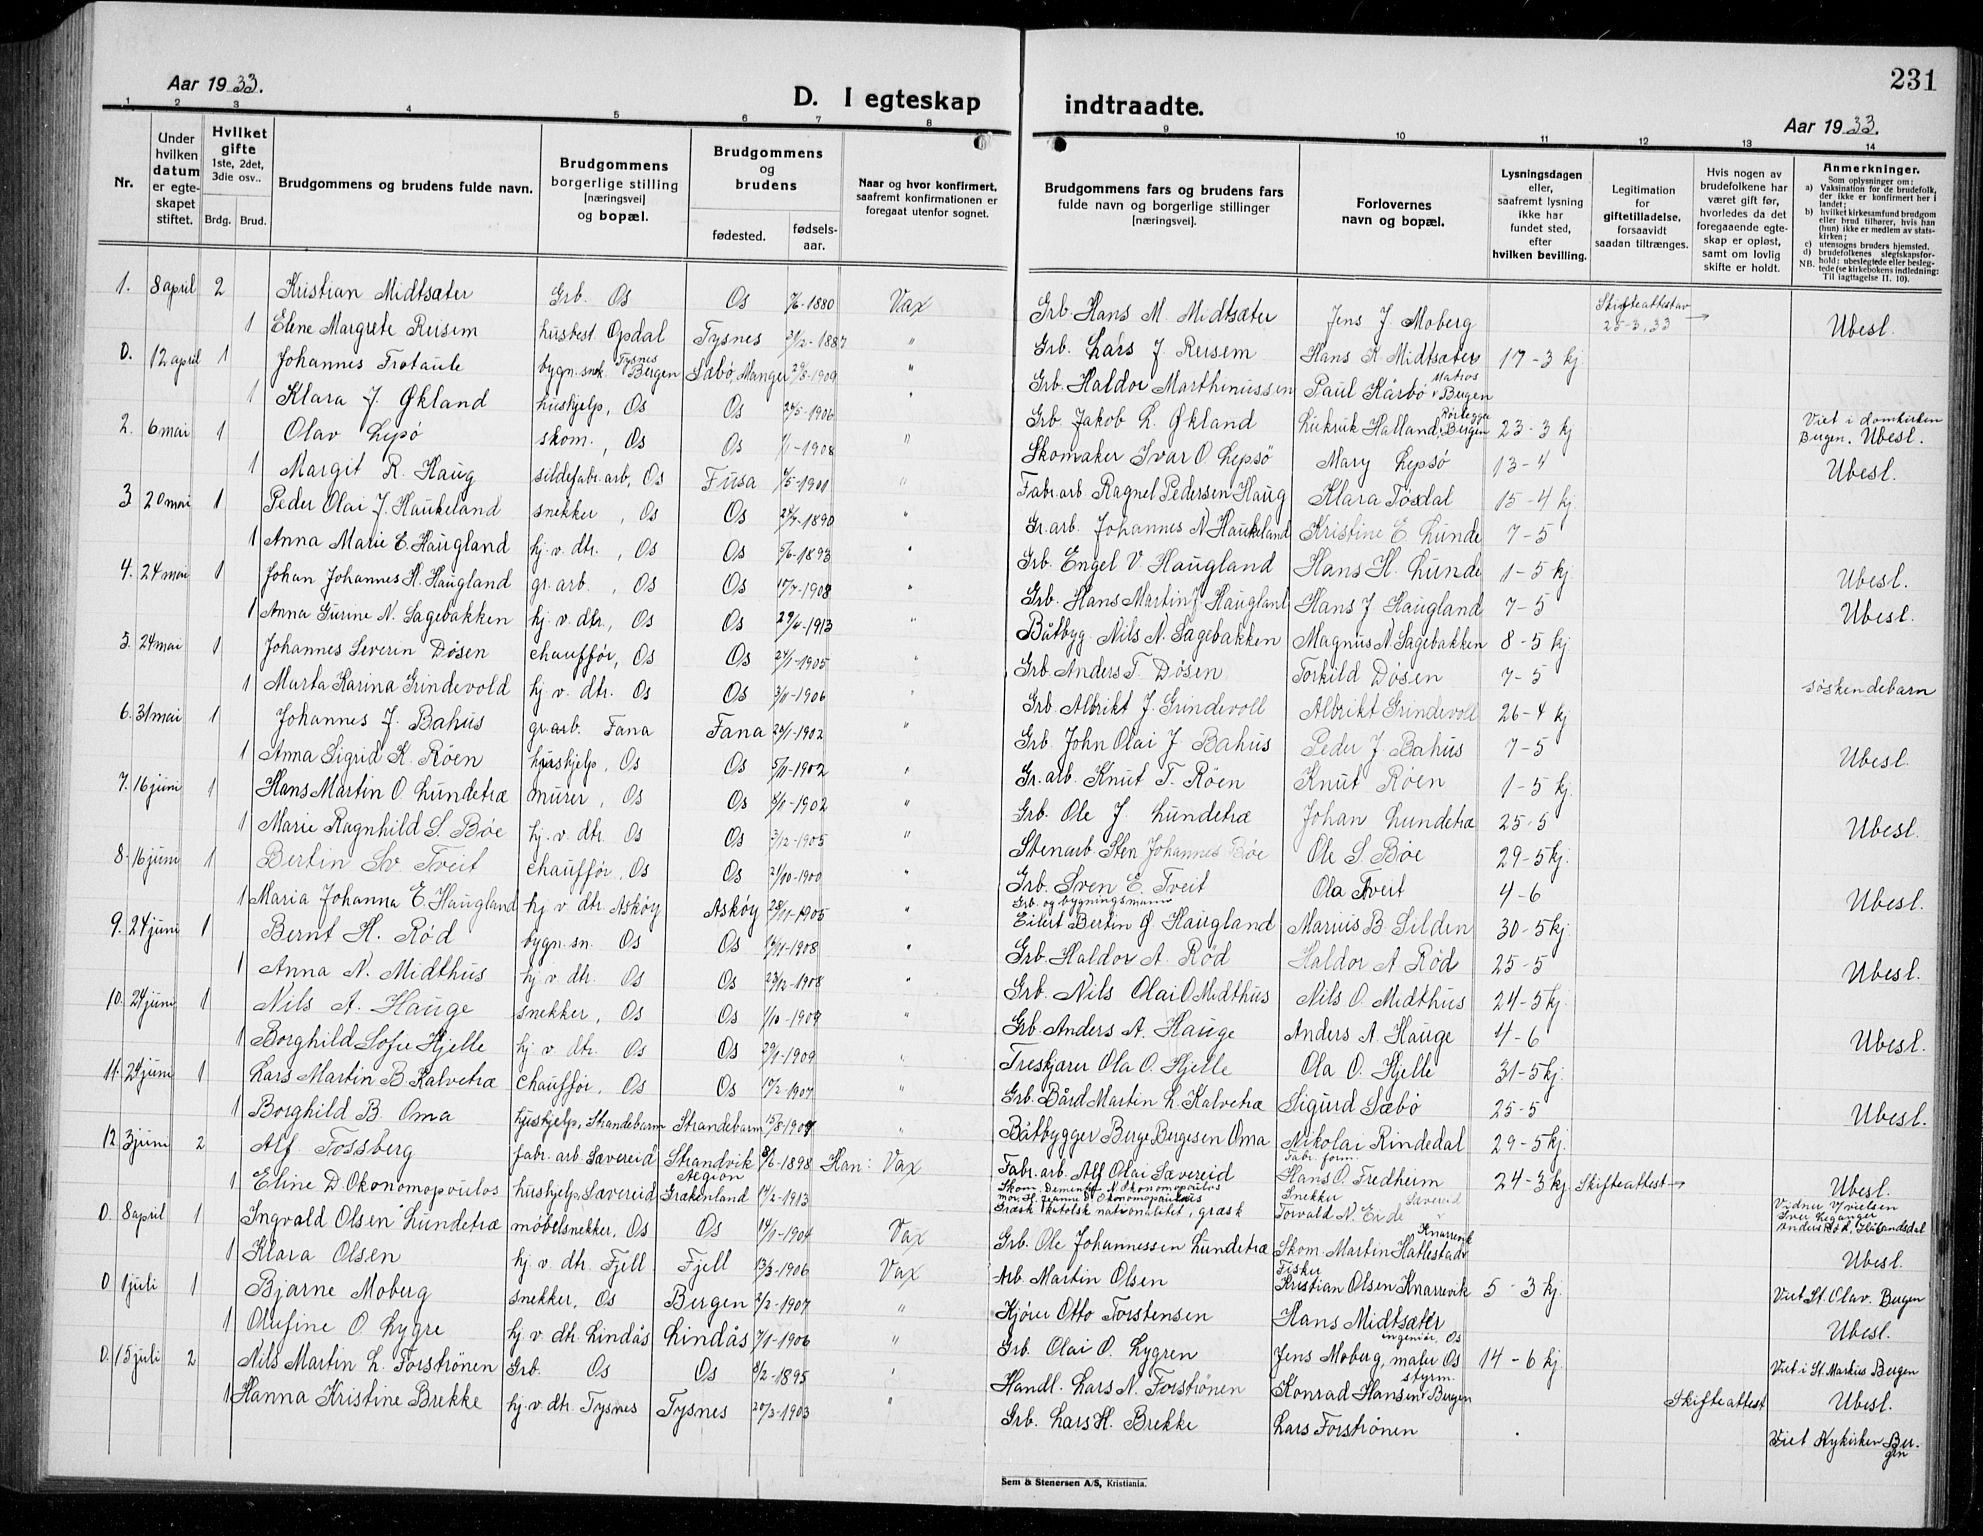 231
Aar 1933.
D. I egteskap indtraadte.
Aar 1933.
1 2 3 4 5 6 7 8 9 10 11 12 13 14
Nr.
Under hvilken datum er egteskapet stiftet.
Hvilket gifte 1ste, 2det, 3die osv..
Brdg. Brud.
Brudgommens og brudens fulde navn.
Brudgommens borgerlige stilling [næringsvei] og bopæl.
Brudgommens og brudens
fødested.
fødsels-aar.
Naar og hvor konfirmert, saafremt konfirmationen er foregaat utenfor sognet.
Brudgommens fars og brudens fars fulde navn og borgerlige stillinger [næringsvei].
Forlovernes navn og bopæl.
Lysningsdagen eller, saafremt lysning ikke har fundet sted, efter hvilken bevilling.
Legitimation for giftetilladelse, forsaavidt saadan tiltrænges.
Hvis nogen av brudefolkene har været gift før, hvorledes da det foregaaende egteskap er opløst, samt om lovlig skifte er holdt.
Anmerkninger.
Som oplysninger om:
a) Vaksination for de brudefolk, der ikke er konfirmert her i landet;
b) hvilket kirkesamfund brudgom eller brud tilhører, hvis han (hun) ikke er medlem av statskirken;
c) utensogns bruders hjemsted.
d) brudefolkenes slegtskapsforhold; ubeslegtede eller beslegtede (se kirkebokens indledning: NB. Til iagttagelse II. 10).
1. 8 april 2 Kristian Midtsæter Grb. Os Os 7/6-1880 Vax Grb. Hans M. Midtsæter Jens J. Moberg Skifteattest av 25-3, 33 → Ubesl.
1 Elene Margrete Reisem husbest. Opdal Tysnes Tysnes 31/2-1887 " Grb. Lars J. Reisem Hans K Midtsæter 17-3 kj
0. 12 april 1 Johannes Trotaule bygn. snek. Bergen Sæbø, Manger 29/8-1909 " Grb. Haldor Marthinussen Paul Kårbø Matros Bergen
1 Klara J. Økland hushjelp, Os Os 24/5-1906 " Grb. Jakob L. Økland Ludvik Halland, Rørlegger Bergen 23-3 kj Viet i domkirken Bergen. Ubesl.
2. 6 mai 1 Olav Lepsø skom., Os Os /1-1908 " Skomaker Ivar O. Lepsø Mary Lepsø 13-4 Ubesl.
1 Margit R. Haug sildefabr. arb, Os Fusa 4/5-1901 " Fabr. arb Ragnel Pedersen Haug Klara Tøsdal 15-4 kj
3 20 mai 1 Peder Olai J. Haukeland snekker, Os Os 24/7-1890 " Gr. arb. Johannes N Haukeland Kristine E. Lunde 7-5
1 Anna Marie E. Haugland hj. v. dtr., Os Os 5/6-1893 " Grb. Engel V Haugland Hans H. Lunde 1-5 kj Ubesl.
4. 24 mai 1 Johan Johannes H. Haugland gr. arb., Os Os 17/7-1908 " Grb. Hans Martin J. Haugland Hans J Haugland 7-5 Ubesl.
1 Anna Gurine N. Sagebakken hj. v. dtr., Os Os 29/4-1913 " Båtbyg. Nils N. Sagebakken Magnus N. Sagebakken 8-5 kj
5. 24 mai 1 Johannes Severin Døsen chauffør, Os Os 24/1-1905 " Grb Anders T. Døsen Torkild Døsen 7-5 søskendebarn
1 Marta Karina Grindevold hj. v. dtr. Os Os 3/11-1906 " Grb. Albrikt J. Grindevoll Albrikt Grindevoll 26-4 kj
6. 31 mai 1 Johannes J. Bahus gr. arb. Fana Fana 26/1-1902 " Grb. John Olai J Bahus Peder J Bahus 7-5 Ubesl.
1 Anna Sigrid K. Røen hjushjelp, Os Os 5/11-1902 " Gr. arb. Knut T. Røen Knut Røen 1-5 kj.
7. 16 juni 1 Hans Martin O. Lundetræ murer, Os Os 6/1-1902 " Grb. Ole J. Lundetræ Johan Lundetræ 25-5 Ubesl.
1 Marie Ragnhild S. Bøe hj. v. dtr. Os Os 3/12-1905 " Stenarb. Sten Johannes Bøe Ole S. Bøe 29-5 kj.
8. 16 juni 1 Bertin Sv. Tveit chauffør, Os Os 21/10-1900 " Grb. Sven E. Tveit Ola Tveit 4-6 Ubesl.
1 Maria Johanna E. Haugland hj. v. dtr. Askøy Askøy 28/11-1905 " Grb. og bygningsmann Eilert Bertin G. Haugland Marius B. Silden 30-5 kj.
9. 24 juni 1 Bernt H. Rød bygn. sn. Os Os 17/11-1908 " Grb. Haldor A. Rød Haldor A Rød 25-5 Ubesl.
1 Anna N. Midthus hj. v. dtr. Os Os 23/12-1908 " Grb. Nils Olai O Midthus Nils O. Midthus 24-5 kj.
10. 24 juni 1 Nils A. Hauge snekker, Os Os /10-1909 " Grb. Anders A. Hauge Anders A. Hauge 4-6 Ubesl.
1 Borghild Sofie Hjelle hj. v. dtr. Os Os 29/1-1909 " Treskjærer Ola O. Hjelle Ola O. Hjelle 31-5 kj.
11. 24 juni 1 Lars Martin B. Kalvetræ chauffør, Os Os 17/2-1907 " Grb. Bård Martin L. Kalvetræ Sigurd Sæbø 25-5 Ubesl.
1 Borghild B. Oma hjushjelp, Strandebarm Strandebarm 15/8-1909 " Båtbygger Berge Bergesen Oma Nikolai Rindedal 29-5 kj.
12. 3 juni 2 Alf Fossberg fabr. arb Sævereid Strandvik 8/6-1898 Han: Vax Fabr. arb. Alf Olai Sævereid Fabr. form. Hans O. Fredheim 24-3 kj Skifteattest → Ubesl.
1 Eline D. Okonomopoulos hushjelp, Sævereid Aegion Grækenland 14/2-1913 Skom. N Økonomopoulos Snekker Torvald N. Eide Sævereid
græsk katolsk nationalitet, græsk
0. 8 april 1 Ingvald Olsen Lundetræ møbelsnekker, Os Os 14/1-1904 Vax Grb. Ole Johannessen Lundetræ Skom. Martin Hatlestad Knarrevik Ubesl.
1 Klara Olsen hj. v. dtr. Fjell Fjell 13/3-1906 Vax Arb. Martin Olsen Fisker Kristian Olsen Knarrevik 5-3 kj. Viet St. Olav. Bergen
0 1 juli 1 Bjarne Moberg snekker, Os Bergen 2/2-1907 " Kjører Otto Torstensen Hans Midtsæter ingeniør, Os Ubesl.
1 Olufine O. Lygre hj. v. dtr. Lindås Lindås 7/1-1906 " Grb. Olai O. Lygren Jens Moberg, maler Os 14-6 kj. Viet i St. Markus Bergen
0. 15 juli 2 Nils Martin L. Forstrønen Grb. Os Os 8/2-1895 " Handl. Lars N. Forstrønen styrm. Konrad Hansen Bergen Skifteattest Ubesl.
1 Hanna Kristine Brekke hj. v. dtr. Tysnes Tysnes 20/3-1903 " Grb. Lars H. Brekke Lars Forstrønen Viet Nykirken Bergen
Sem & Stenersen A/S, Kristiania.